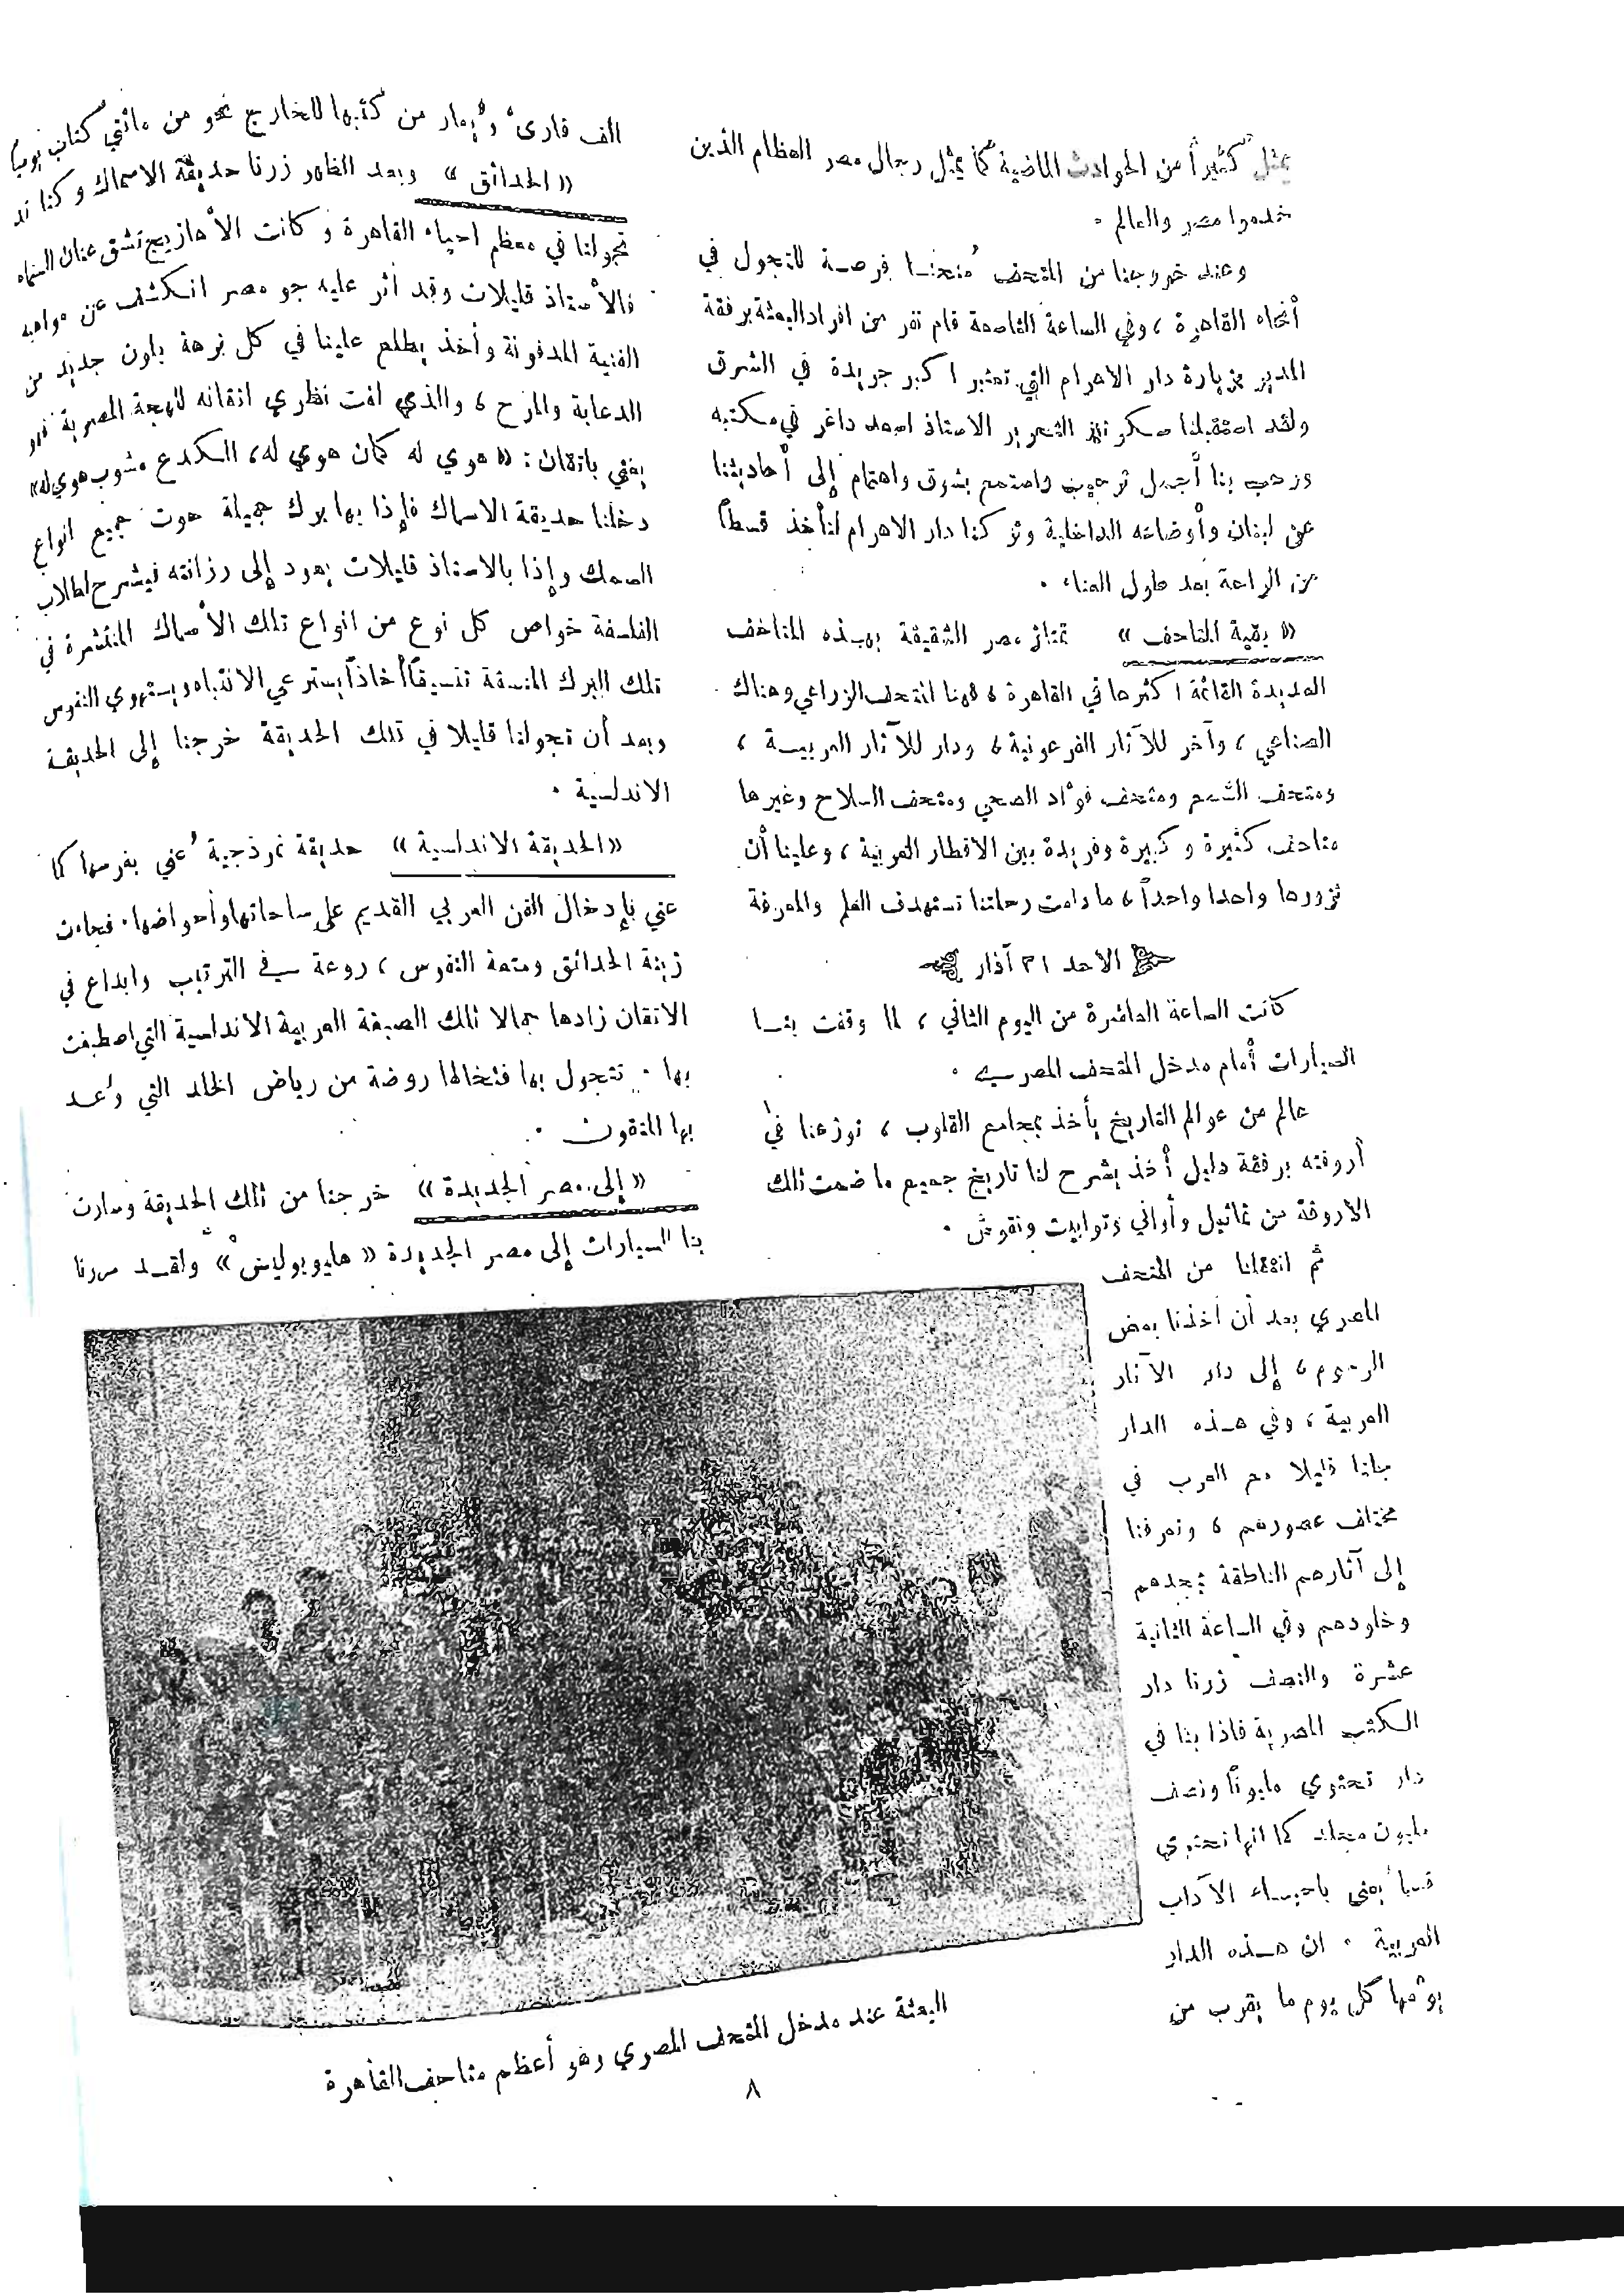 يمثل كثيراً من الحوادث الماضية كما يمثل رجال مصر العظام الذين
خدموا مصر والعالم .
وعند خروجنا من المتحف مُنحنا فرصة للتجول في
أنحاء القاهرة ، وفي الساعة التاسعة قام نفر من افراد البعثة برفقة
المدير بزيارة دار الاهرام التي تعتبر اكبر جريدة في الشرق
ولقد استقبلنا سكرتير التحرير الاستاذ اسعد داغر في مكتبه
ورحب بنا أجمل ترحيب واستمع بشوق واهتمام إلى أحاديثنا
عن لبنان وأوضاعه الداخلية وتركنا دار الاهرام لنأخذ قسطاً
من الراحة بعد طول العناء .
« بقية المتاحف » تمتاز مصر الشقيقة بهذه المتاحف
العديدة القائمة اكثرها في القاهرة ، فهنا المتحف الزراعي وهناك
الصناعي ، وآخر للآثار الفرعونية ، ودار للآثار العربية ،
ومتحف الشمع ومتحف فؤاد الصحي ومتحف السلاح وغيرها
متاحف كثيرة وكبيرة وفريدة بين الاقطار العربية ، وعلينا أن
نزورها واحدا واحداً ، ما دامت رحلتنا تستهدف العلم والمعرفة
الاحد ٣١ آذار
كانت الساعة العاشرة من اليوم الثاني ، لما وقفت بنا
السيارات أمام مدخل المتحف المصري .
عالم من عوالم التاريخ يأخذ بمجامع القلوب ، توزعنا في
أروقته برفقة دليل أخذ يشرح لنا تاريخ جميع ما ضمت تلك
الاروقة من تماثيل وأواني وتوابيت ونقوش .
ثم انتقلنا من المتحف
المصري بعد أن أخذنا بعض
الرسوم ، إلى دار الآثار
العربية ، وفي هذه الدار
جلنا قليلا مع العرب في
مختلف عصورهم ، وتعرفنا
إلى آثارهم الناطقة بمجدهم
وخلودهم وفي الساعة الثانية
عشرة والنصف زرنا دار
الكتب المصرية فاذا بنا في
دار تحتوي مليوناً ونصف
مليون مجلد كما انها تحتوي
قسماً يعنى باحياء الآداب
العربية . ان هذه الدار
يؤمها كل يوم ما يقرب من
ألف قارىء ويُعار من كتبها للخارج نحو من مائتي كتاب يومياً
« الحدائق » وبعد الظهر زرنا حديقة الاسماك وكنا قد
تجولنا في معظم احياء القاهرة وكانت الأهازيج تشق عنان السماء
فالأستاذ قليلات وقد أثر عليه جو مصر انكشف عن مواهبه
الفنية المدفونة وأخذ يطلع علينا في كل نزهة بلون جديد من
الدعابة والمزح ، والذي لفت نظري اتقانه للهجة المصرية فهو
يغني باتقان : « هوي له كمان هوي له ، الكدع مشوب هوي له »
دخلنا حديقة الاسماك فإذا بها برك جميلة حوت جميع انواع
السمك وإذا بالاستاذ قليلات يعود إلى رزانته فيشرح لطلاب
الفلسفة خواص كل نوع من انواع تلك الأسماك المنتشرة في
تلك البرك المنسقة تنسيقاً أخاذاً يسترعي الانتباه ويستهوي النفوس
وبعد أن تجولنا قليلا في تلك الحديقة خرجنا إلى الحديقة
الاندلسية .
« الحديقة الاندلسية » حديقة نموذجية عُني بغرسها كما
عني بإدخال الفن العربي القديم على ساحاتها وأحواضها . فجاءت
زينة الحدائق ومتعة النفوس ، روعة في الترتيب وابداع في
الاتقان زادها جمالا تلك الصبغة العربية الاندلسية التي اصطبغت
بها . نتجول بها فنخالها روضة من رياض الخلد التي وُعد
بها المتقون .
« إلى مصر الجديدة » خرجنا من تلك الحديقة وسارت
بنا السيارات إلى مصر الجديدة « هليوبوليس » ولقد مررنا
البعثة عند مدخل المتحف المصري وهو أعظم متاحف القاهرة
٨